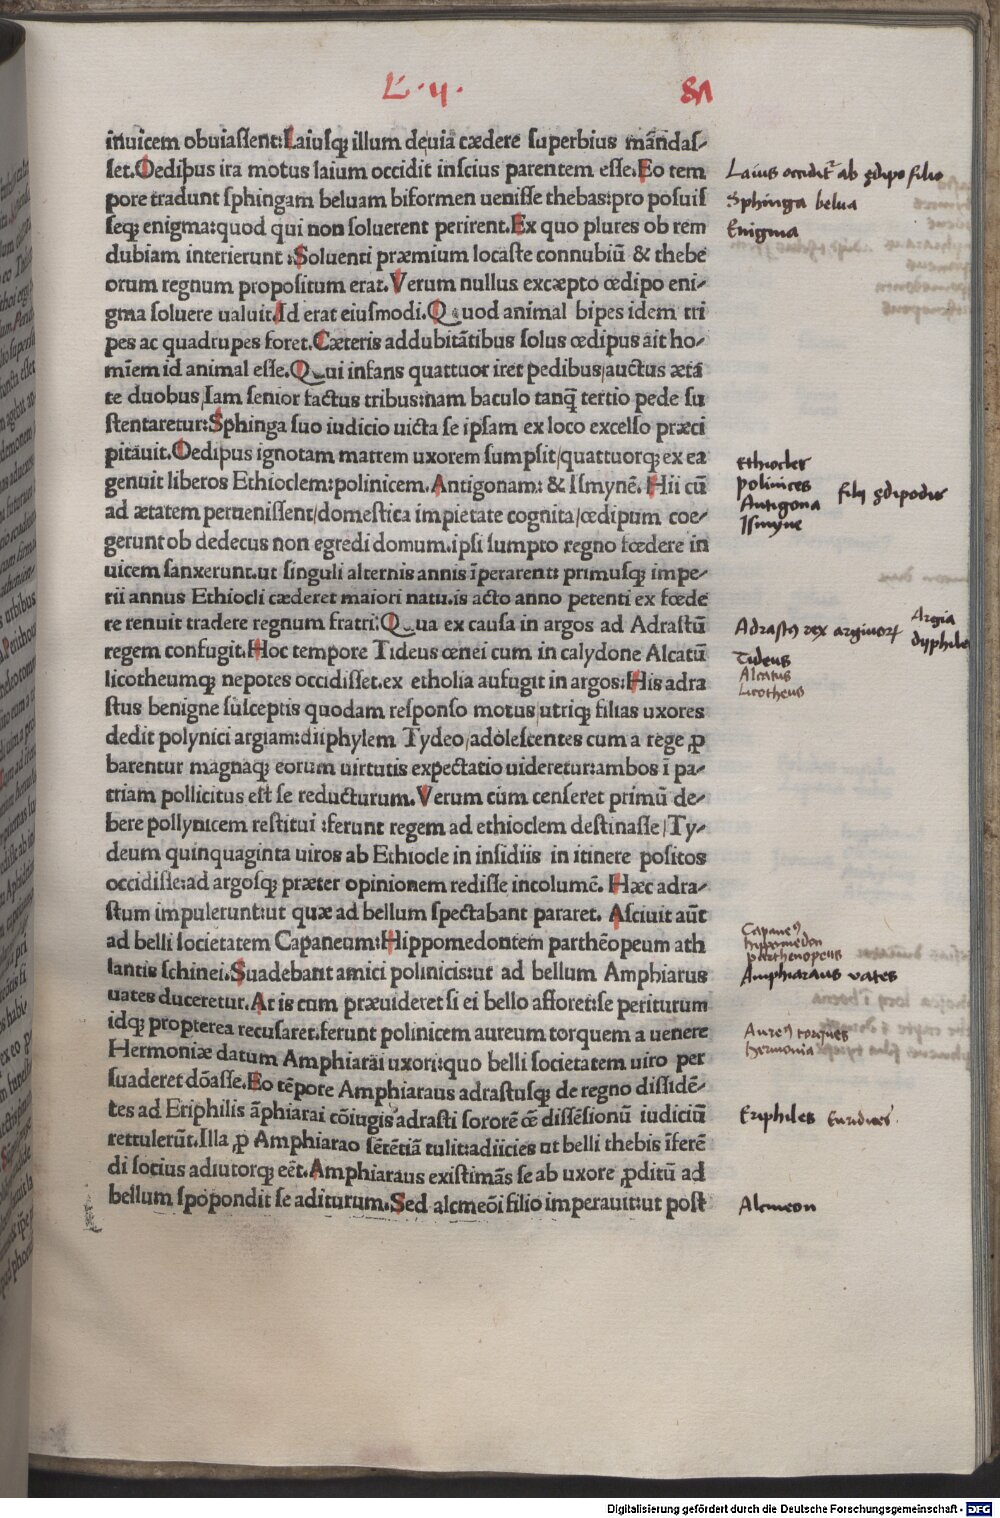 L. 4.
81
inuicem obuiassent:Laiusqꝫ illum de uia cædere superbius mādas⸗
set.Oedipus ira motus laium occidit inscius parentem esse.Eo tem
pore tradunt sphingam beluam biformen uenisse thebas:pro posuis
seqꝫ enigma:quod qui non soluerent perirent.Ex quo plures ob rem
dubiam interierunt:Soluenti præmium locaste connubiū & thebe
orum regnum propositum erat.Verum nullus excæpto œdipo eni⸗
gma soluere ualuit.Id erat eiusmodi.Quod animal bipes idem tri
pes ac quadrupes foret.Cæteris addubitātibus solus œdipus ait ho⸗
mīem id animal esse.Qui infans quattuor iret pedibus/auctus ætā
te duobus/Iam senior factus tribus:nam baculo tanq̄ tertio pede su
stentaretur:Sphinga suo iudicio uicta se ipsam ex loco excelso præci
pitauit.Oedipus ignotam matrem uxorem sumpsit/quattuorqꝫ ex ea
genuit liberos Ethioclem:polinicem.Antigonam: & Ismynē.Hii cū
ad ætatem peruenissent/domestica impietate cognita/œdipum coe⸗
gerunt ob dedecus non egredi domum.ipsi sumpto regno fœdere in
uicem sanxerunt.ut singuli alternis annis īperarent: primusqꝫ impe⸗
rii annus Ethiocli cæderet maiori natu.is acto anno petenti ex fœde
re renuit tradere regnum fratri:Qua ex causa in argos ad Adrastū
regem confugit.Hoc tempore Tideus œnei cum in calydone Alcatū
licotheumqꝫ nepotes occidisset.ex etholia aufugit in argos:His adra
stus benigne susceptis quodam responso motus/utriqꝫ filias uxores
dedit polynici argiam:diiphylem Tydeo/adolescentes cum a rege ꝓ
barentur magnaqꝫ eorum uirtutis expectatio uideretur:ambos ī pa⸗
triam pollicitus est se reducturum.Verum cum censeret primū de⸗
bere pollynicem restitui :ferunt regem ad ethioclem destinasse/Ty⸗
deum quinquaginta uiros ab Ethiocle in insidiis in itinere positos
occidisse:ad argosqꝫ præter opinionem redisse incolumē. Hæc adra⸗
stum impulerunt:ut quæ ad bellum spectabant pararet. Asciuit aūt
ad belli societatem Capaneum:Hippomedontem parthēopeum ath
lantis schinei.Suadebant amici polinicis:ut ad bellum Amphiarus
uates duceretur.At is cum præuideret si ei bello afforet:se periturum
idqꝫ propterea recusaret.ferunt polinicem aureum torquem a uenere
Hermoniæ datum Amphiarai uxori:quo belli societatem uiro per
suaderet dōasse.Eo tēpore Amphiaraus adrastusqꝫ de regno dissidē⸗
tes ad Eriphilis āphiarai cōiugis adrasti sororē œ̄ dissēsionū iudiciū
rettulerūt.Illa ꝓ Amphiarao sētētiā tulit:adiicies ut belli thebis īferē
di socius adiutorqꝫ eēt.Amphiaraus existimās se ab uxore ꝓditū ad
bellum spopondit se aditurum.Sed alcmeōi filio imperauit:ut post
Laius occidit͛ ab ędipo filio
Sphinga belua
Enigma
Ethiocles
polinices
Antigona
Ismyne
filij ędipodis
Adrastꝰ rex argiuorꝝ
Argia
dyphile
Tideus
Alcatus
Licotheus
Capaneꝰ
hippomedon
parthenopeus
Amphiaraus vates
Aureꝰ torques
hermonia
Eriphiles
Alcmeon
Digitalisierung gefördert durch die Deutsche Forschungsgemeinschaft - DFG